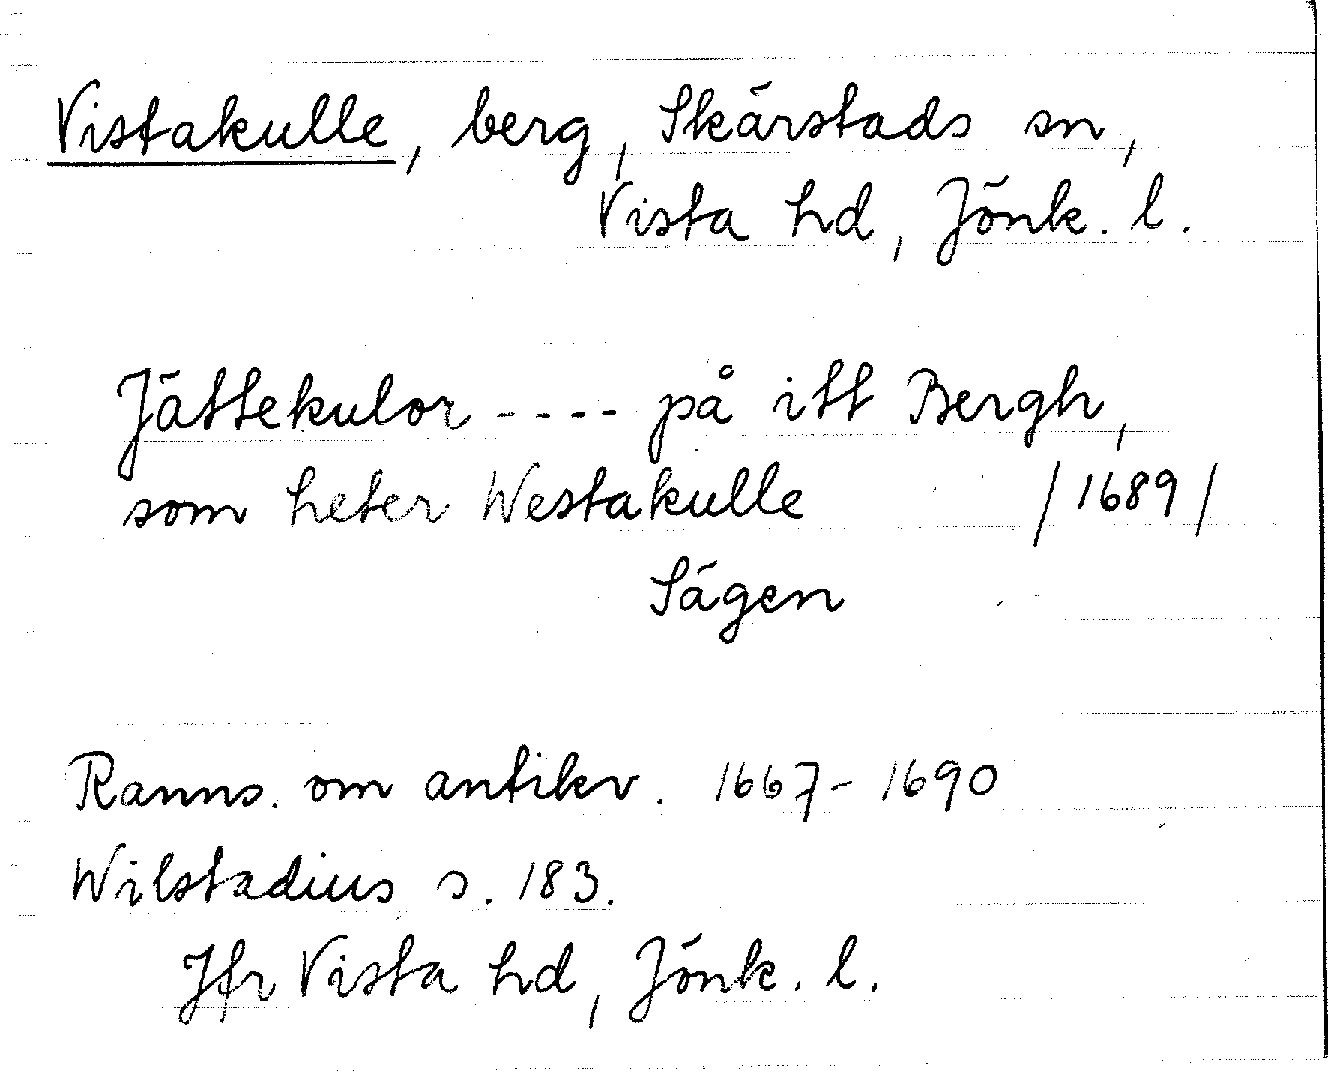 Vistakulle, berg, Skärstads sn,
Vista hd, Jönk. l.
Jättekulor ---- på itt Bergh,
som heter Westakulle /1689/
Sägen
Ranns. om antikv. 1667-1690
Wilstadius s. 183.
Jfr Vista hd, Jönk. l.